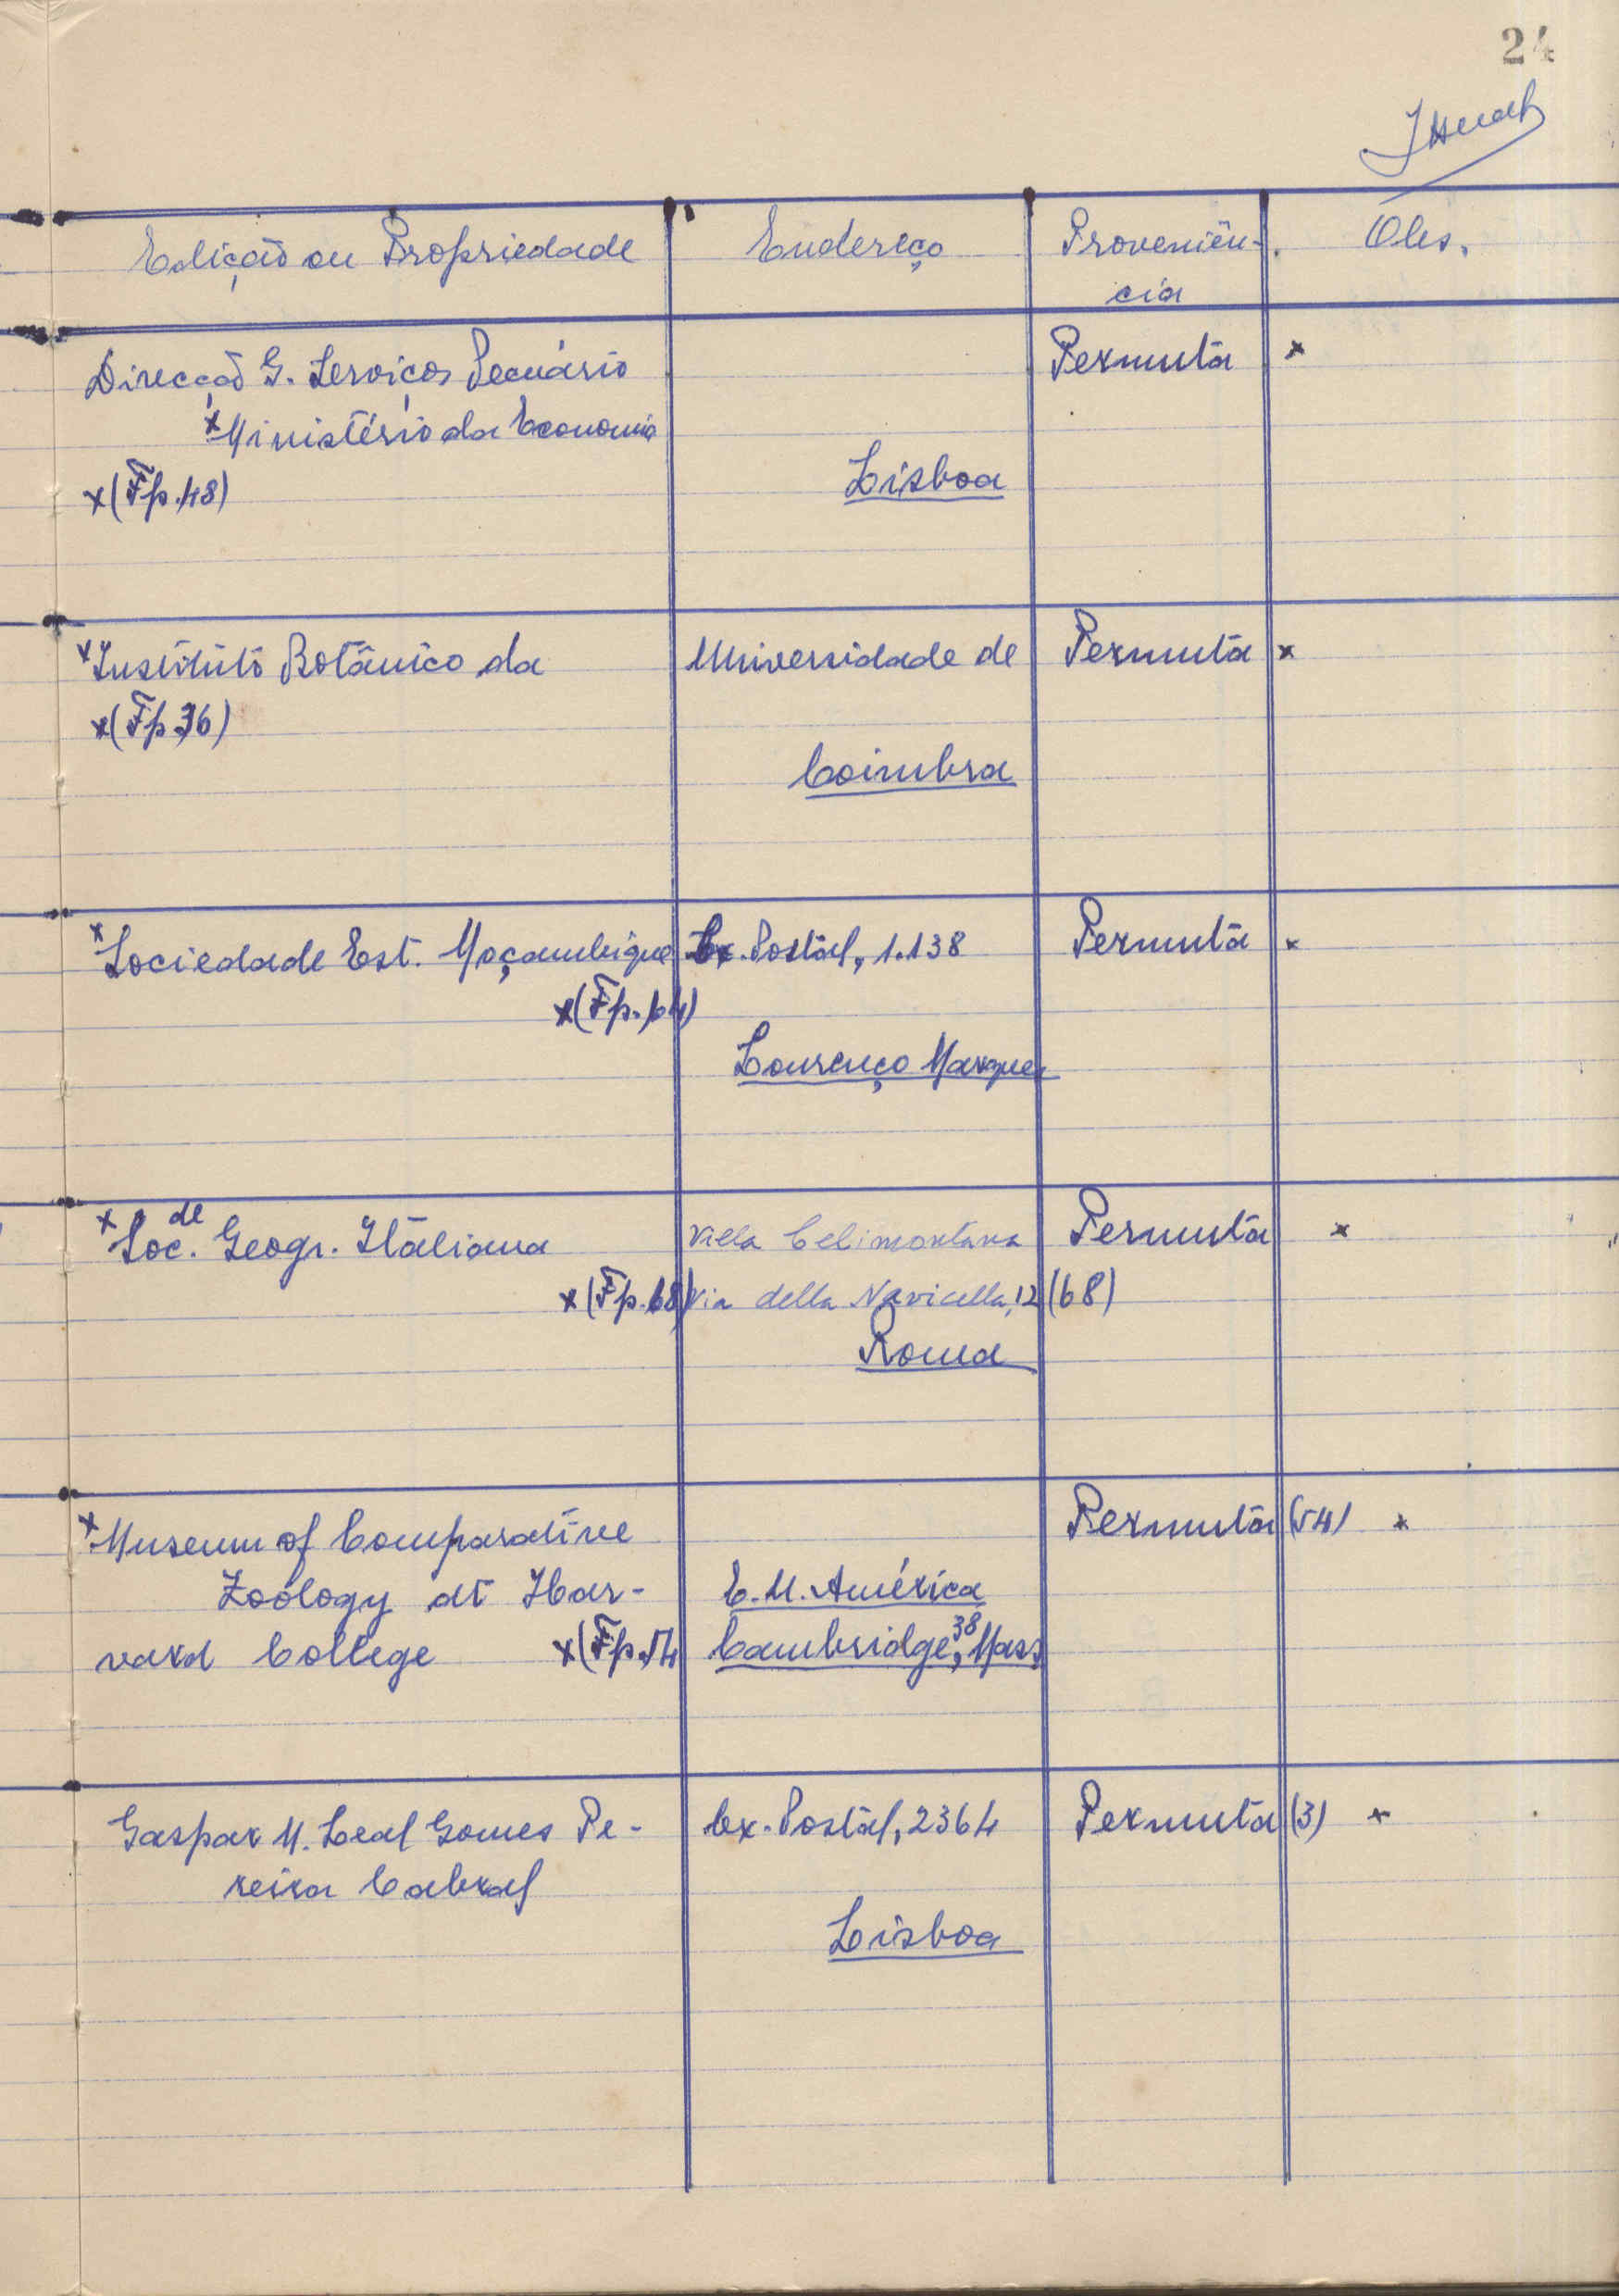 24
Edição ou Propriedade Endereço Proveniên- Obs.
cia
Direcção G. Serviços Pecuário Permuta x
x Ministério da Economia
x (Fp. 48) Lisboa
x Instituto Botânico da Universidade de Permuta x
x (Fp 36)
Coimbra
x Sociedade Est. Moçambique Cx. Postal, 1.138 Permuta x
x (Fp. 64)
Lourenço Marques
x Soc. de Geogr. Italiana Villa Celimontana Permuta x
x (Fp. 68) Via della Navicella, 12 (68)
Roma
x Museum of Comparative Permuta (54) x
Zoology at Har- E.U. América
vard College x (Fp. 54 Cambridge, 38 Mass.
Gaspar M. Leal Gomes Pe- Cx. Postal, 2364 Permuta (3) x
reira Cabral
Lisboa